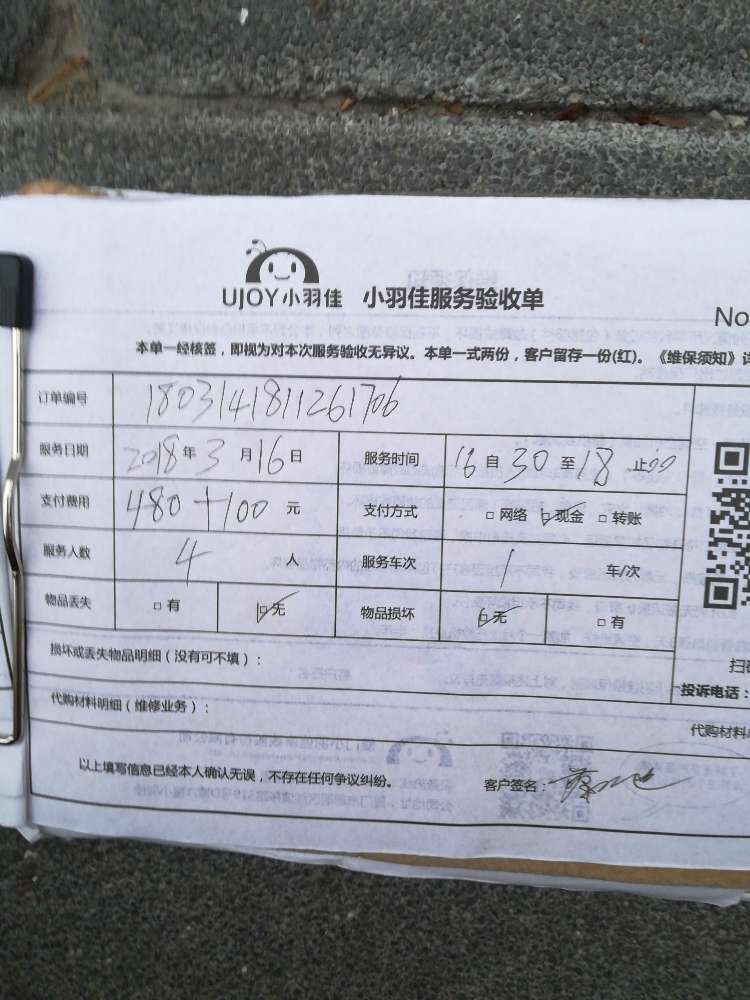 UJOY小羽佳 小羽佳服务验收单
No
本单一经核签，即视为对本次服务验收无异议。本单一式两份，客户留存一份(红)。《维保须知》详
订单编号 1803141811261706
服务日期 2018年3月16日 服务时间 16自30至18止00
支付费用 480+100元 支付方式 □网络 ☑现金 □转账
服务人数 4人 服务车次 1 车/次
物品丢失 □有 ☑无 物品损坏 ☑无 □有
损坏或丢失物品明细（没有可不填）：
扫码
投诉电话：
代购材料明细（维修业务）：
代购材料
以上填写信息已经本人确认无误，不存在任何争议纠纷。 客户签名：